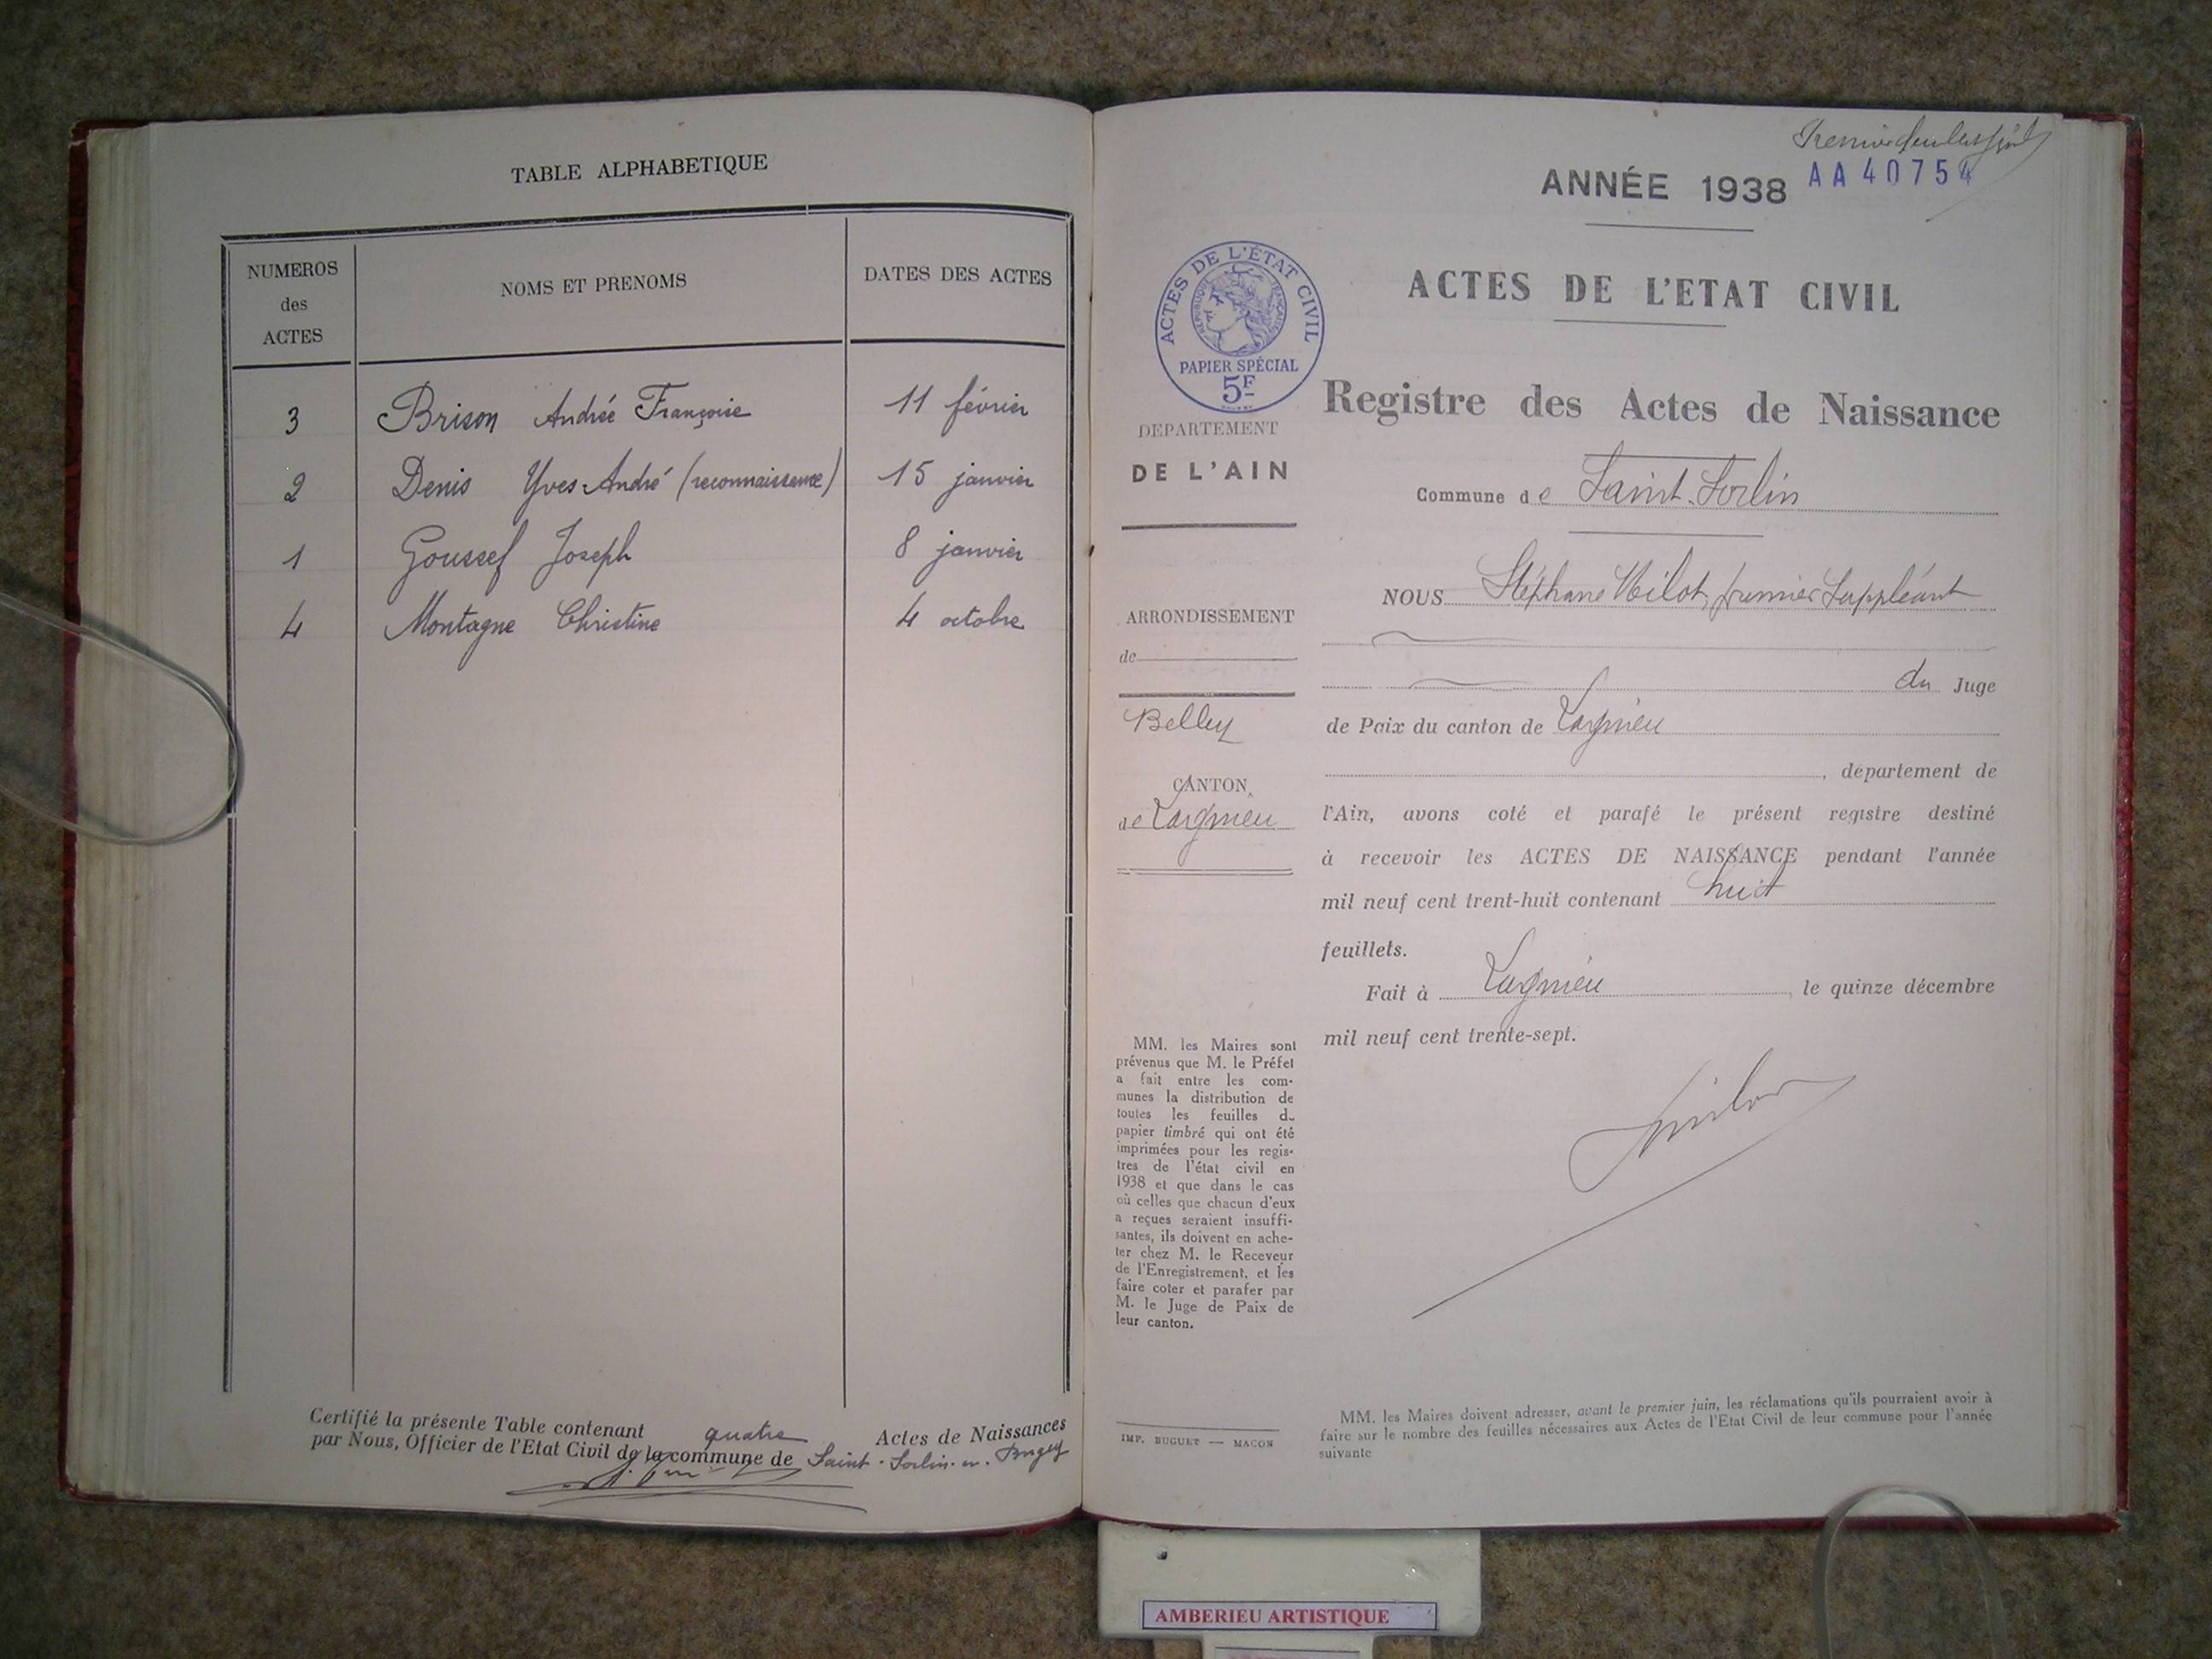 TABLE ALPHABETIQUE
NUMEROS
des
ACTES
NOMS ET PRENOMS
DATES DES ACTES
3 Brison Andrée Françoise 11 février
2 Denis Yves André (reconnaissance) 15 janvier
1 Goussef Joseph 8 janvier
4 Montagne Christine 4 octobre
Certifié la présente Table contenant quatre Actes de Naissances
par Nous, Officier de l'Etat Civil de la commune de Saint-Sorlin-en-Bugey
AA40754
ANNÉE 1938
ACTES DE L'ÉTAT CIVIL
RÉPUBLIQUE FRANÇAISE
PAPIER SPÉCIAL
5F
DEPARTEMENT
DE L'AIN
ARRONDISSEMENT
de
Belley
CANTON
de Lagnieu
MM. les Maires sont
prévenus que M. le Préfet
a fait entre les com-
munes la distribution de
toutes les feuilles de
papier timbré qui ont été
imprimées pour les regis-
tres de l'état civil en
1938 et que dans le cas
où celles que chacun d'eux
a reçues seraient insuffi-
santes, ils doivent en ache-
ter chez M. le Receveur
de l'Enregistrement, et les
faire coter et parafer par
M. le Juge de Paix de
leur canton.
IMP. BUGUET — MACON
ACTES DE L'ETAT CIVIL
Registre des Actes de Naissance
Commune de Saint-Sorlin
NOUS Stéphane Milot, premier Suppléant
du Juge
de Paix du canton de Lagnieu
, département de
l'Ain, avons coté et parafé le présent registre destiné
à recevoir les ACTES DE NAISSANCE pendant l'année
mil neuf cent trent-huit contenant huit
feuillets.
Fait à Lagnieu, le quinze décembre
mil neuf cent trente-sept.
MM. les Maires doivent adresser, avant le premier juin, les réclamations qu'ils pourraient avoir à
faire sur le nombre des feuilles nécessaires aux Actes de l'Etat Civil de leur commune pour l'année
suivante
AMBERIEU ARTISTIQUE